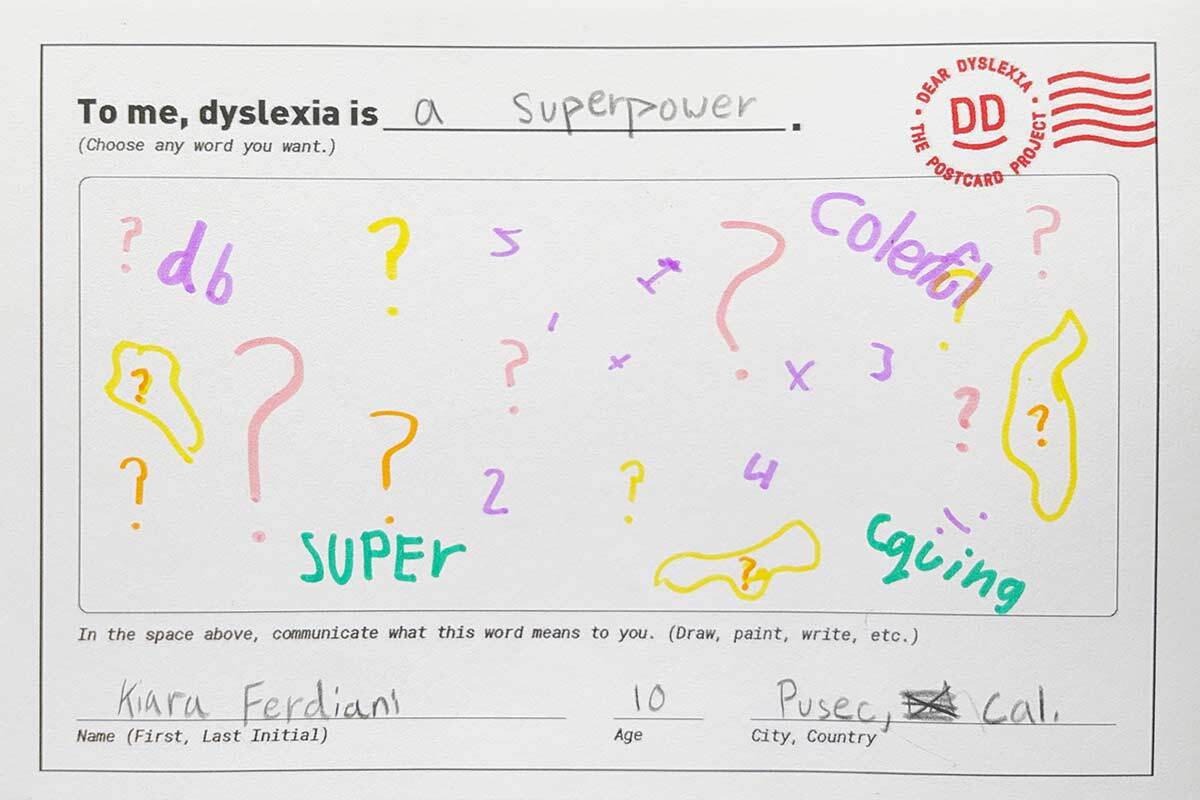 To me, dyslexia is a superpower.
(Choose any word you want.)
DEAR DYSLEXIA
DD
THE POSTCARD PROJECT
? db ? 5 I ? Colerful ?
?
? ? ' ? x x 3 ? ?
? ? 2 ? 4
SUPEr ? Cquing
In the space above, communicate what this word means to you. (Draw, paint, write, etc.)
Kiara Ferdiani 10 Pusec, Cal.
Name (First, Last Initial) Age City, Country